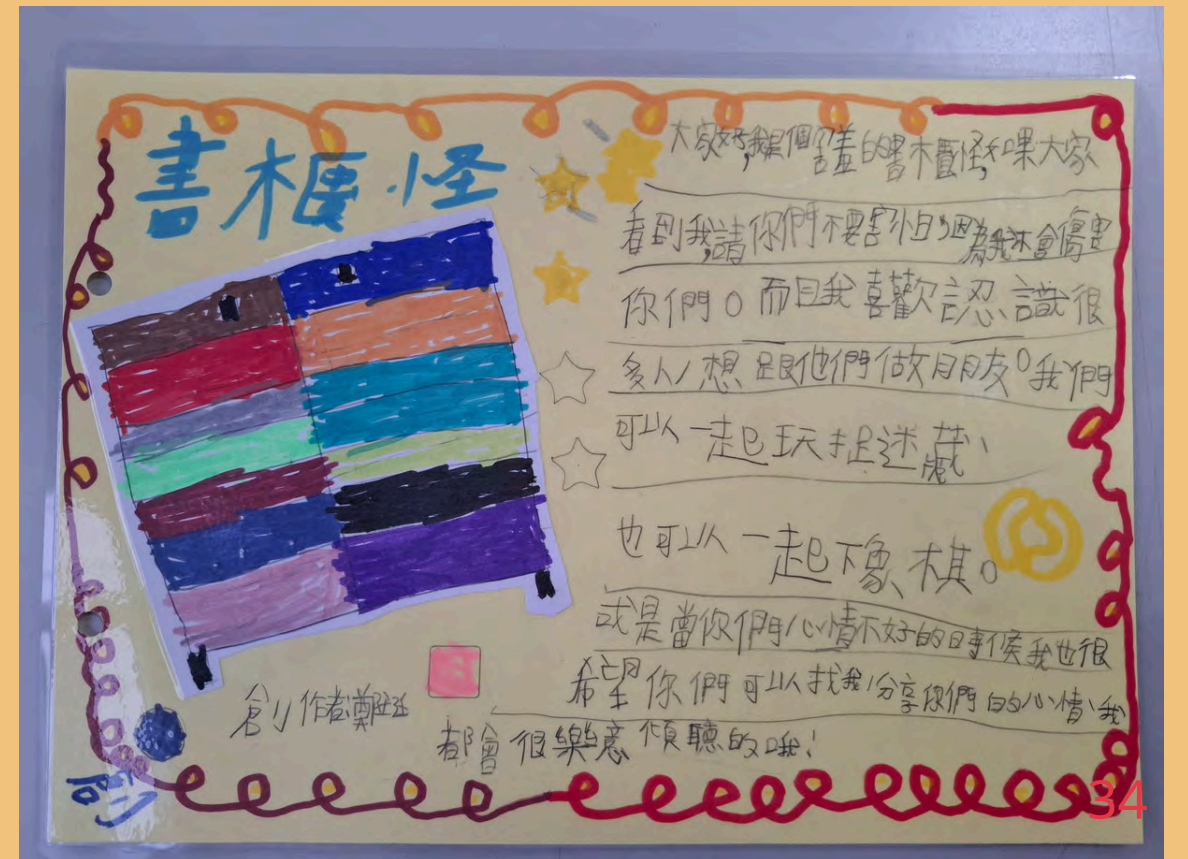 書櫃怪
大家好,我是個害羞的書櫃怪,如果大家
看到我,請你們不要害怕,因為我不會傷害
你們。而且我喜歡認識很
多人,想跟他們做朋友。我們
可以一起玩捉迷藏、
也可以一起下象棋。
或是當你們心情不好的時候我也很
希望你們可以找我分享你們的心情、我
都會很樂意傾聽的哦!
創作者鄭
34